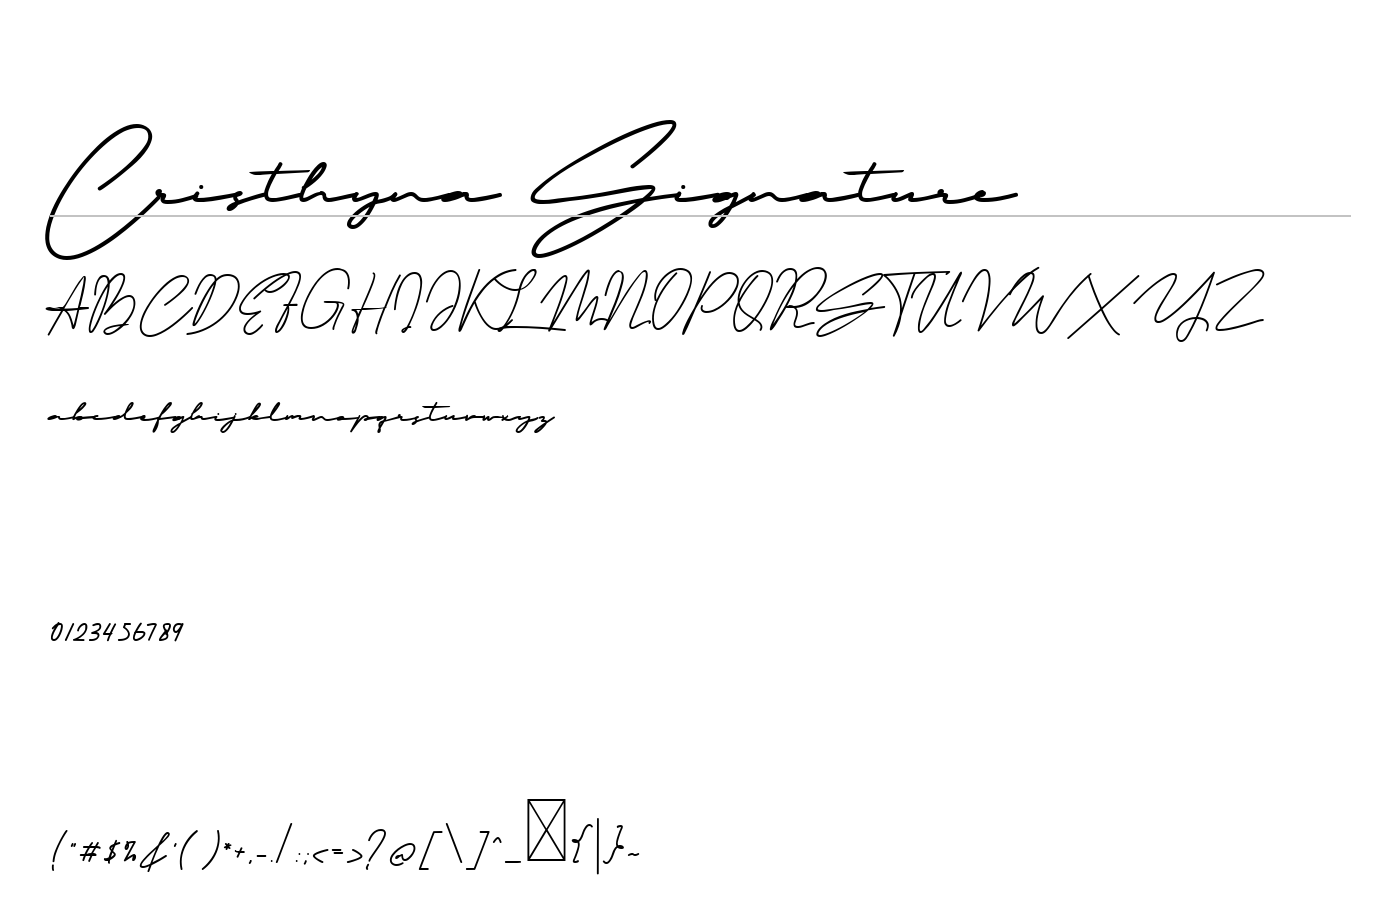 Cristhyna Signature
ABCDEFGHIJKLMNOPQRSTUVWXYZ
abcdefghijklmnopqrstuvwxyz
0123456789
!"#$%&'()*+,-./:;<=>?@[\]^_{|}~